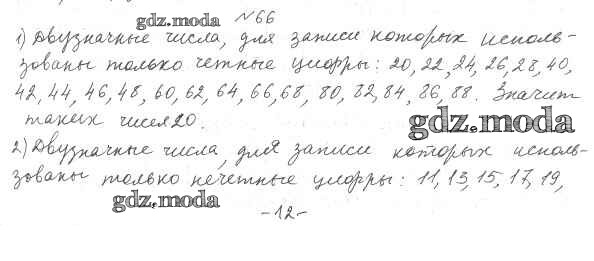 gdz.moda №66
1) Двузначные числа, для записи которых исполь-
зованы только четные цифры: 20, 22, 24, 26, 28, 40,
42, 44, 46, 48, 60, 62, 64, 66, 68, 80, 82, 84, 86, 88. Значит
таких чисел 20.
gdz.moda
2) Двузначные числа, для записи которых исполь-
зованы только нечетные цифры: 11, 13, 15, 17, 19,
gdz.moda
-12-